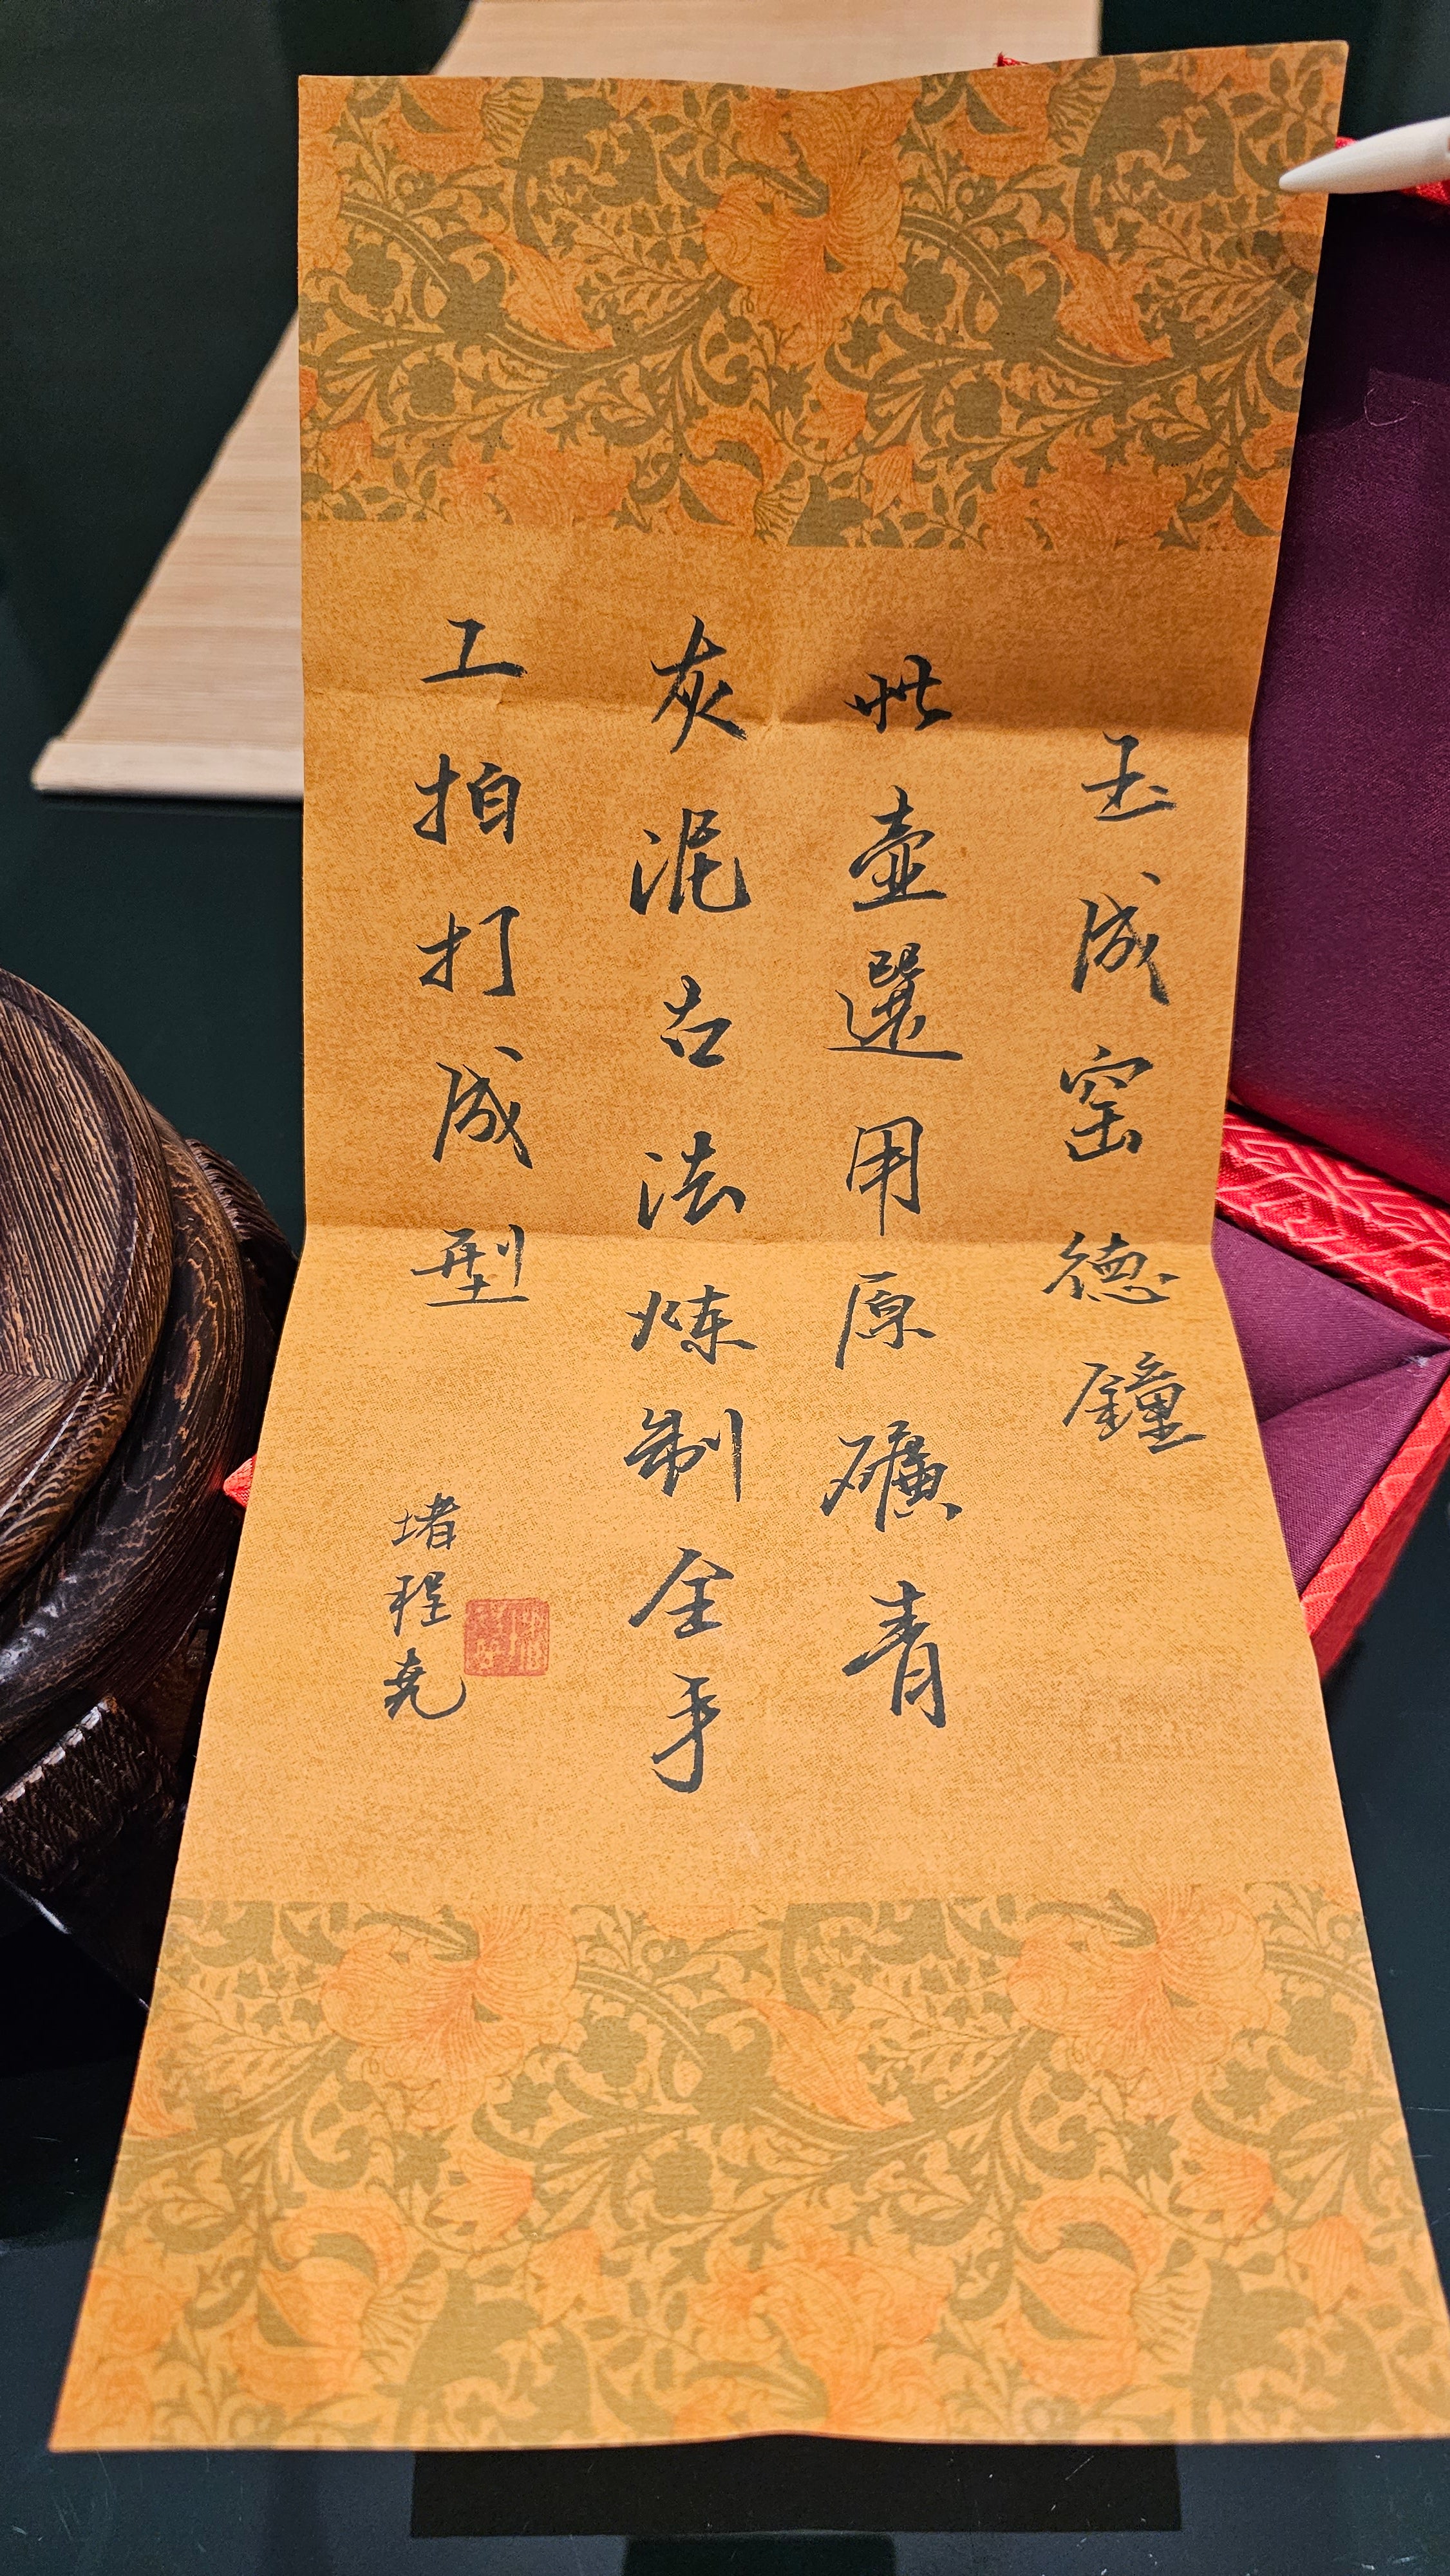 玉成窑德鐘
此壺選用原礦青
灰泥古法炼制全手
工拍打成型
堵程尭